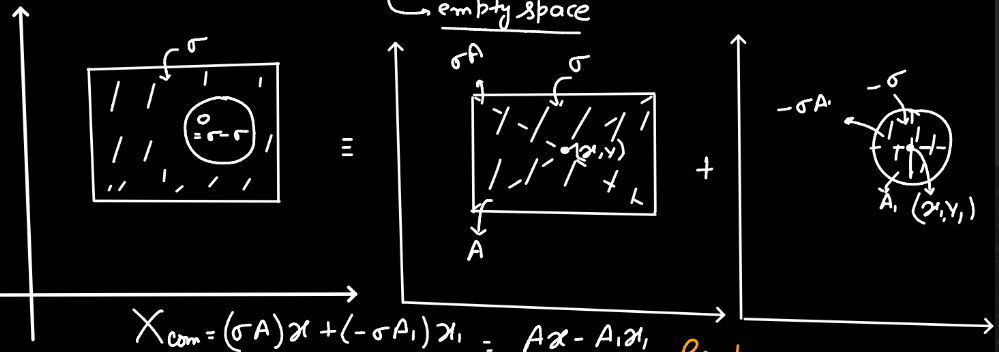 empty space
σ
0
= σ-σ
≡
σA
σ
(x,y)
A
+
-σ
-σA₁
A₁ (x₁,y₁)
X_com = (σA)x + (-σA₁)x₁ = Ax - A₁x₁